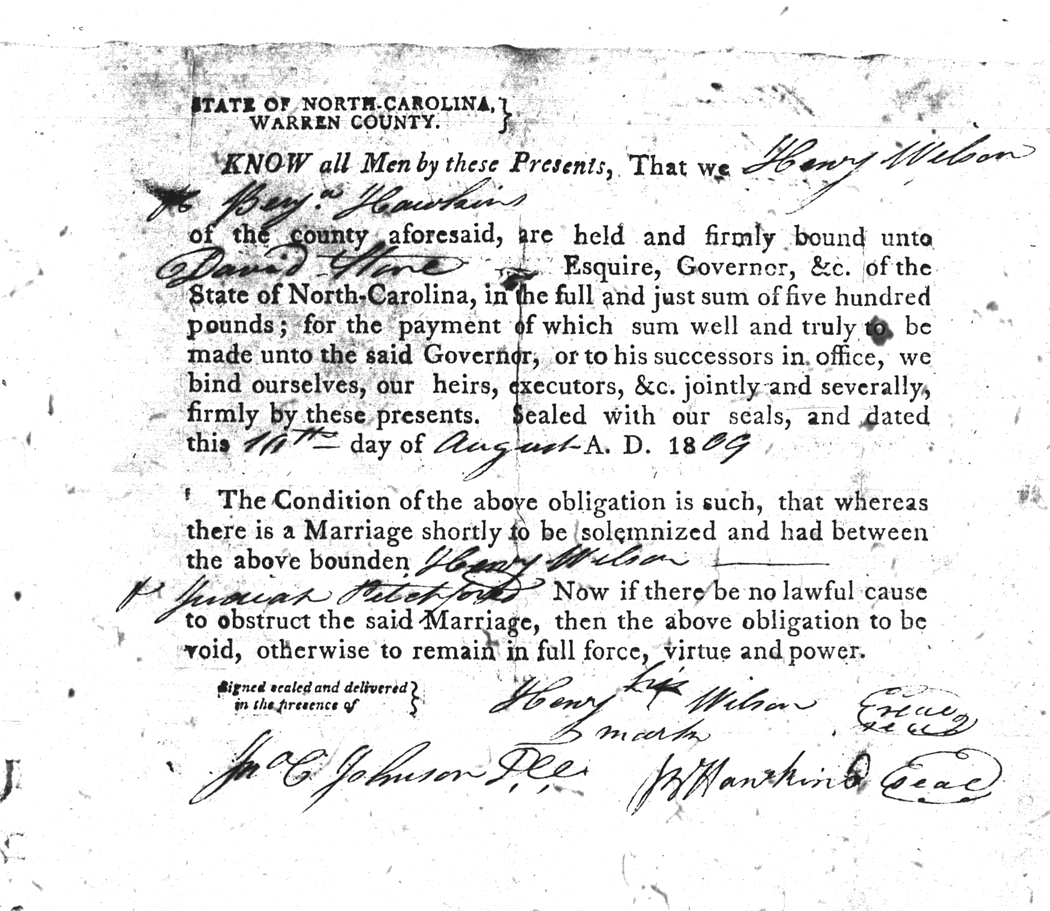 STATE OF NORTH-CAROLINA, }
WARREN COUNTY.
KNOW all Men by these Presents, That we Henry Wilson
& Benj.a Hawkins
of the county aforesaid, are held and firmly bound unto
David Stone Esquire, Governor, &c. of the
State of North-Carolina, in the full and just sum of five hundred
pounds; for the payment of which sum well and truly to be
made unto the said Governor, or to his successors in office, we
bind ourselves, our heirs, executors, &c. jointly and severally,
firmly by these presents. Sealed with our seals, and dated
this day of August A. D. 1809
The Condition of the above obligation is such, that whereas
there is a Marriage shortly to be solemnized and had between
the above bounden Henry Wilson
& Judiah Pitchford Now if there be no lawful cause
to obstruct the said Marriage, then the above obligation to be
void, otherwise to remain in full force, virtue and power.
Signed sealed and delivered }
in the presence of
Henry his x Wilson seal
mark
Jno C Johnson D.C.C. Hawkins seal